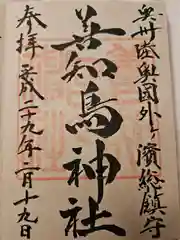 奥州陸奥国外ヶ濱総鎮守
善知鳥神社
奉拝
平成二十九年二月十九日